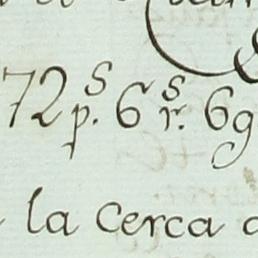 72 p.s 6 r.s 6 g
la cerca